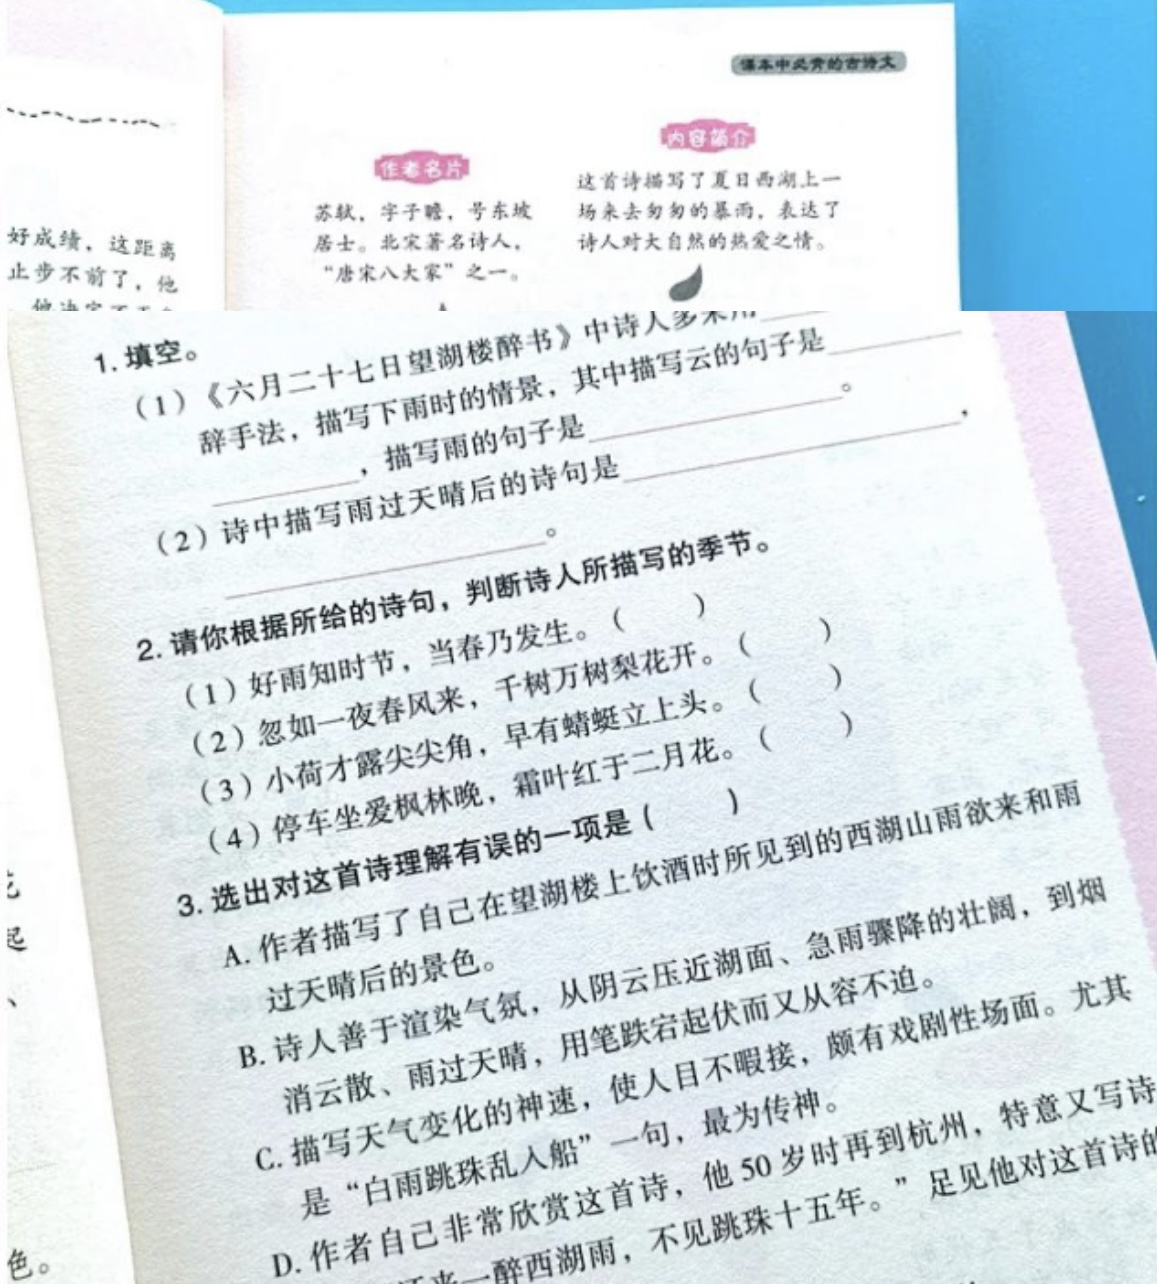 课本中必背的古诗文
好成绩，这距离
止步不前了，他
作者名片
苏轼，字子瞻，号东坡
居士。北宋著名诗人，
“唐宋八大家”之一。
内容简介
这首诗描写了夏日西湖上一
场来去匆匆的暴雨，表达了
诗人对大自然的热爱之情。
1. 填空。
（1）《六月二十七日望湖楼醉书》中诗人多采用
辞手法，描写下雨时的情景，其中描写云的句子是
，描写雨的句子是 。
（2）诗中描写雨过天晴后的诗句是 ，
。
2. 请你根据所给的诗句，判断诗人所描写的季节。
（1）好雨知时节，当春乃发生。（ ）
（2）忽如一夜春风来，千树万树梨花开。（ ）
（3）小荷才露尖尖角，早有蜻蜓立上头。（ ）
（4）停车坐爱枫林晚，霜叶红于二月花。（ ）
3. 选出对这首诗理解有误的一项是（ ）
A. 作者描写了自己在望湖楼上饮酒时所见到的西湖山雨欲来和雨
过天晴后的景色。
B. 诗人善于渲染气氛，从阴云压近湖面、急雨骤降的壮阔，到烟
消云散、雨过天晴，用笔跌宕起伏而又从容不迫。
C. 描写天气变化的神速，使人目不暇接，颇有戏剧性场面。尤其
是“白雨跳珠乱入船”一句，最为传神。
D. 作者自己非常欣赏这首诗，他 50 岁时再到杭州，特意又写诗
来一醉西湖雨，不见跳珠十五年。”足见他对这首诗的
起
、
色。